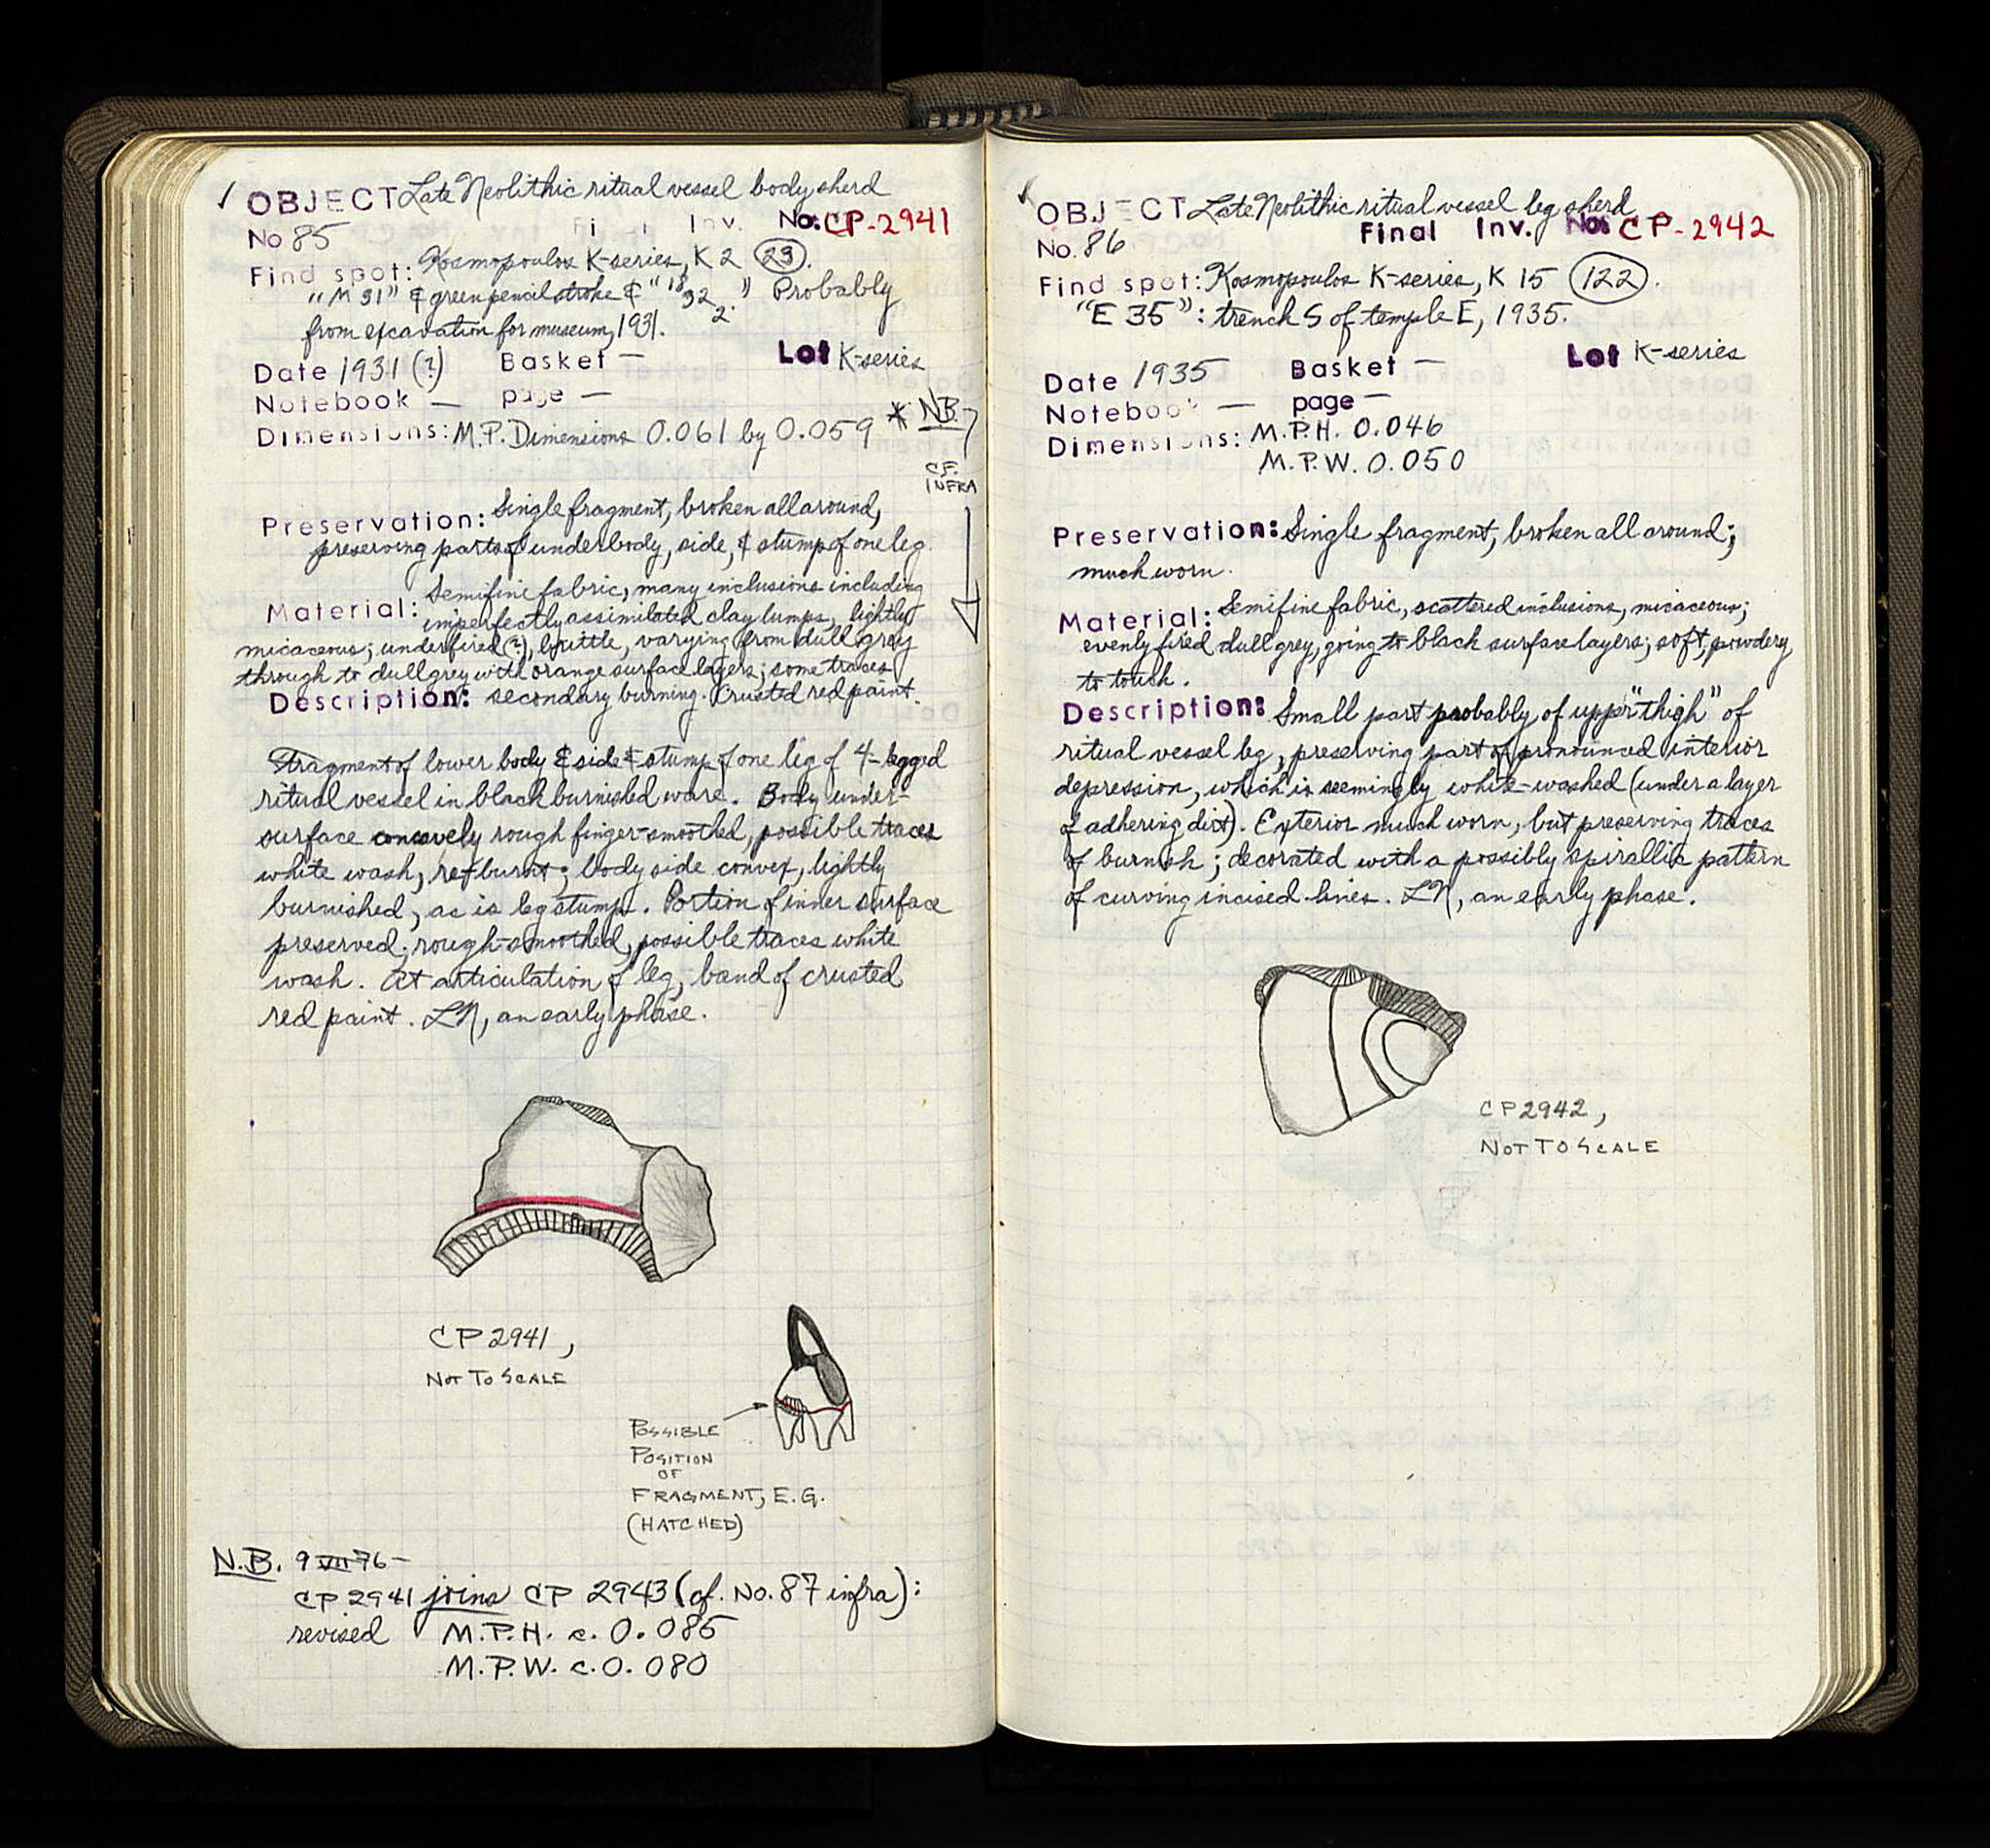 ✓ OBJECT Late Neolithic ritual vessel body sherd
Final Inv. No: CP-2941
No 85
Find spot: Kosmopoulos K-series, K 2 (23).
"M 31" & green pencil stroke & Probably
from excavation for museum, 1931.
Date 1931 (?) Basket — Lot K-series
Notebook — page —
Dimensions: M.P. Dimensions 0.061 by 0.059 * N.B.
CF.
INFRA
Preservation: Single fragment, broken all around,
preserving parts of underbody, side, & stump of one leg.
Semifine fabric, many inclusions including
Material: imperfectly assimilated clay lumps, lightly
micaceous; underfired (?), brittle, varying from dull grey
through to dull grey with orange surface layers; some traces
Description: secondary burning. Crusted red paint.
Fragment of lower body & side & stump of one leg of 4-legged
ritual vessel in black burnished ware. Body under-
surface concavely rough finger-smoothed, possible traces
white wash, burnt; body side convex, lightly
burnished, as is leg stump. Portion of inner surface
preserved; rough-smoothed, possible traces white
wash. At articulation of leg, band of crusted
red paint. LN, an early phase.
CP 2941,
NOT TO SCALE
POSSIBLE
POSITION
OF
FRAGMENT, E.G.
(HATCHED)
N.B. 9 VII 76 –
CP 2941 joins CP 2943 (cf. No. 87 infra):
revised M.P.H. c. 0.085
M.P.W. c. 0.080
✓ OBJECT Late Neolithic ritual vessel leg sherd
Final Inv. No: CP-2942
No. 86
Find spot: Kosmopoulos K-series, K 15 (122).
"E 35": trench S of temple E, 1935.
Date 1935 Basket — Lot K-series
Notebook — page —
Dimensions: M.P.H. 0.046
M.P.W. 0.050
Preservation: Single fragment, broken all around;
much worn.
Material: Semifine fabric, scattered inclusions, micaceous;
evenly fired dull grey, going to black surface layers; soft, powdery
to touch.
Description: Small part probably of upper "thigh" of
ritual vessel leg, preserving part of pronounced interior
depression, which is seemingly white-washed (under a layer
of adhering dirt). Exterior much worn, but preserving traces
of burnish; decorated with a possibly spirallic pattern
of curving incised lines. LN, an early phase.
CP 2942,
NOT TO SCALE